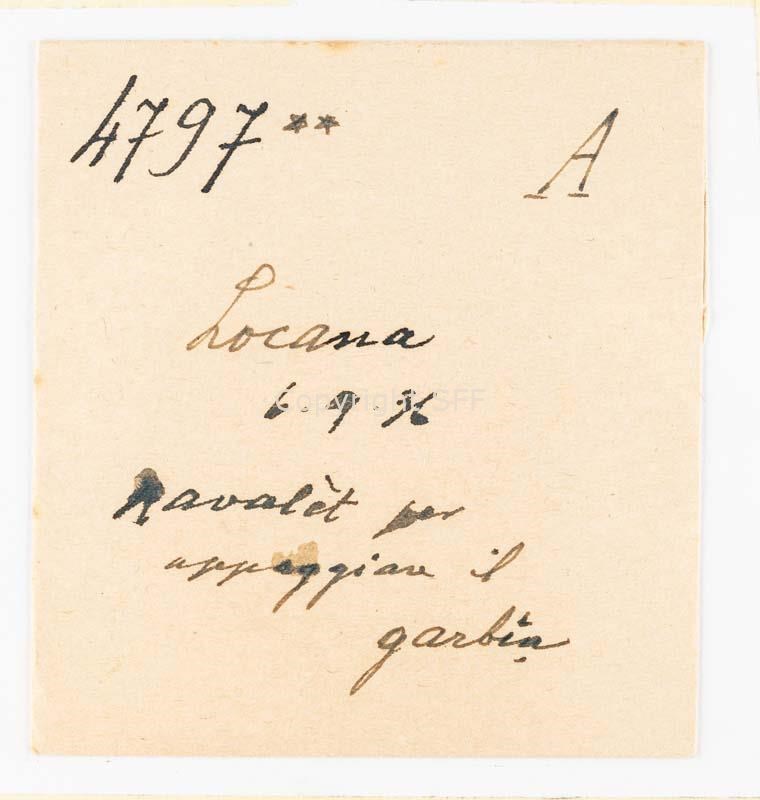 4797** A
Locana
6.9.36
Kavalèt per
appoggiare il
garbin
Copyright SFF